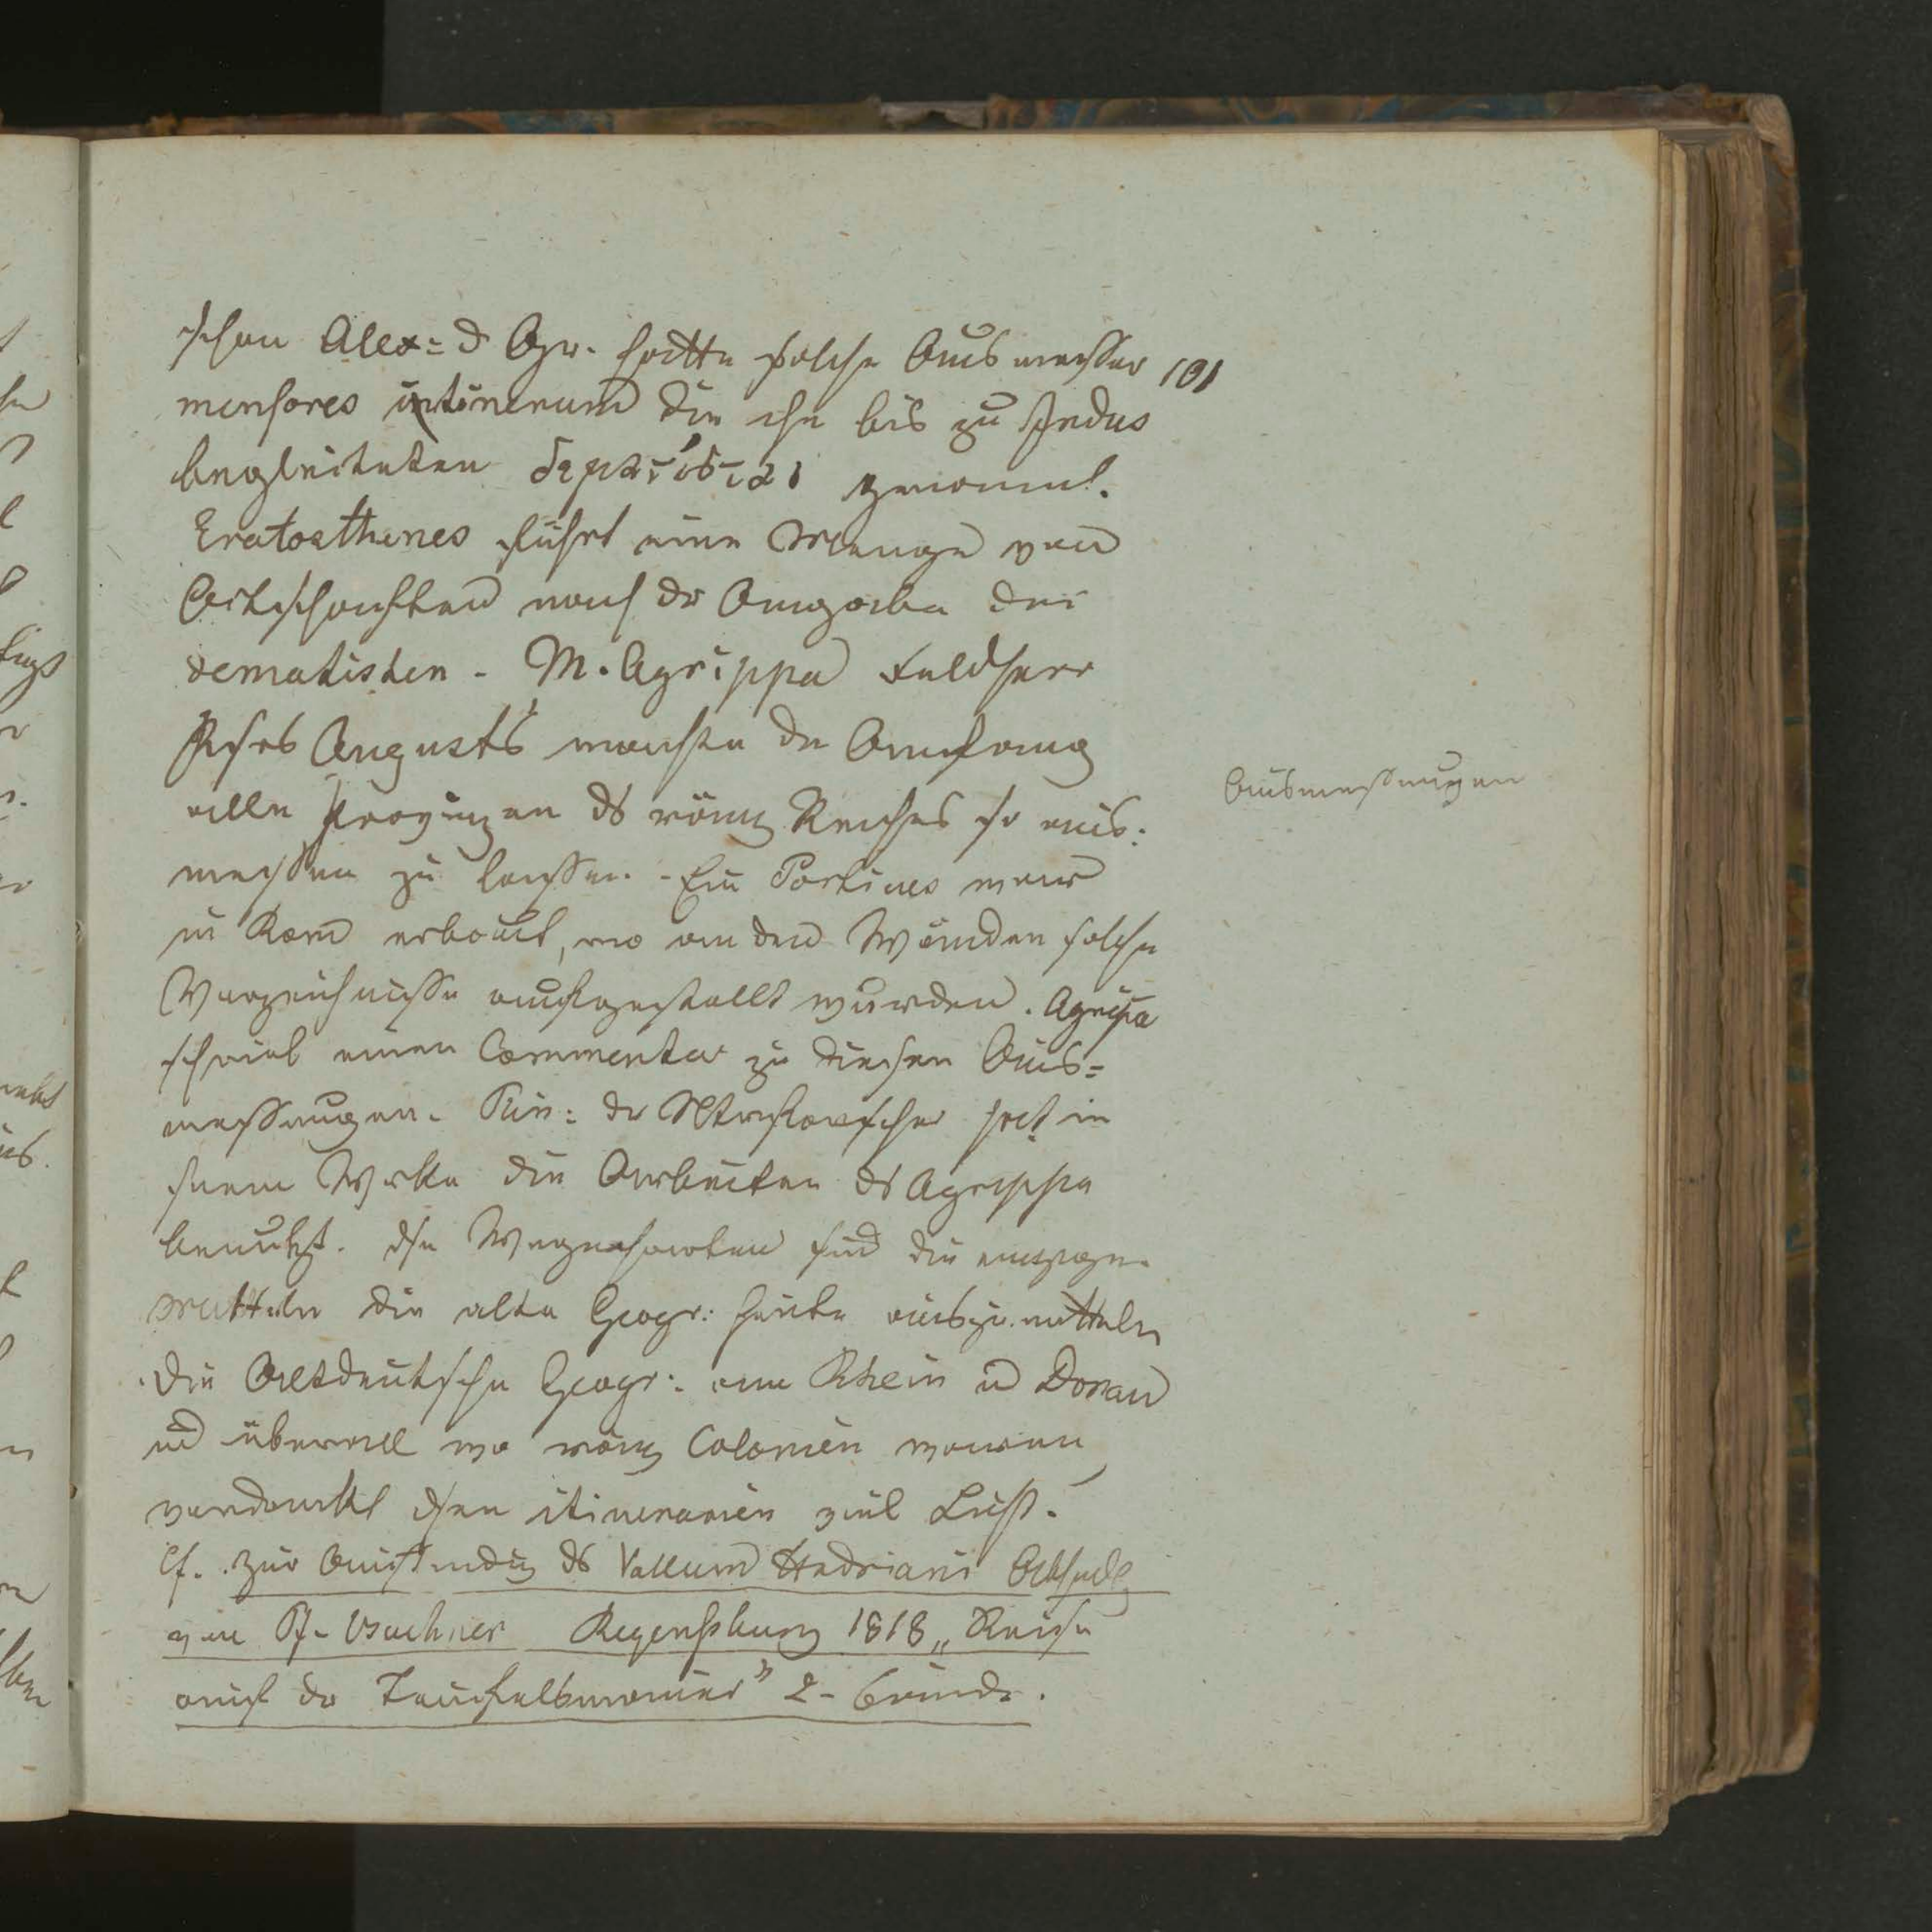 schon Alex= d Gr. hatte solche Ausmesser 101
mensores itinerum die ihn bis zu Indus
begleiteten genannt.
Eratosthenes führt eine Menge von
Ortschaften nach dr Angabe der
vematisten - M. Agrippa Feldherr
Augusts machte de Anfang
alle Provinzen ds röm Reiches so aus:
messen zu lassen. - Ein Porticus war
in Rom erbaut, wo an den Wänden solche
Verzeichnisse aufgestellt wurden. Agrippa
schrieb einen Commentar zu diesen Aus=
messungen. Plin: dr Ntrforscher hat in
seinem Werke die Arbeiten ds Agrippa
benutzt. dse Wegecharten sind die einzigen
Mitteln die alte Geogr: heute auszumitteln
Die Altdeutsche Geogr: am Rhein u Donau
ud überall wo röm Colonien waren
verdankt dsen itinerarien viel Licht.
Cf. zur ds Vallum Hadriani
von Pf. Buchner Regensburg 1818 „Reise
auf dr Teufelsmauer" 2-
Ausmessungen